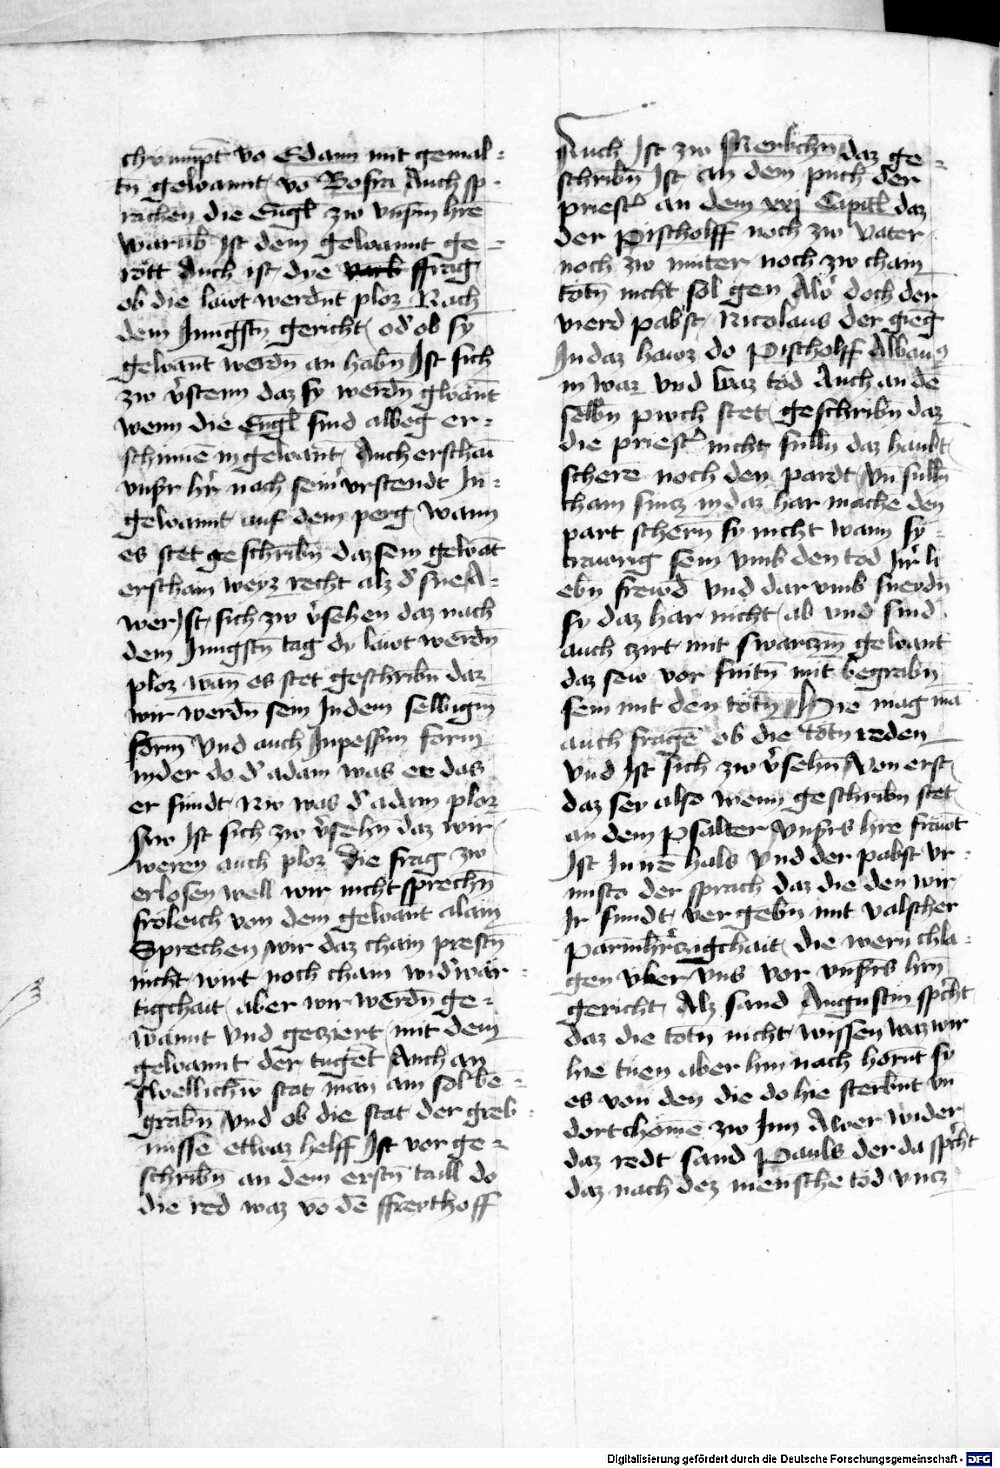 chvmmpt vō Edam mit gemal-
tn̄ gewannt vō Bosra Auch sp-
rachen die Engl zw vnserm hrē
warūb ist dem gewannt ge-
rött Auch ist dye frag
ob die lawt werdnt ploz Nach
dem Jungstn̄ gericht od' ob sy
gewant werdn̄ an habn̄ Ist sich
zw v'stenn daz sy werdn̄ gwant
wenn die Engl sind albeg er-
schinnē in gewant Auch erschain
vnser h'r nach seinr vrstendt In-
gewannt auf dem perg wann
es stet geschribn̄ daz sein gewāt
erscham weyz recht alz d' sne A-
wer Ist sich zw v'sehen daz nach
dem Jungstn̄ tag dy lawt werdn̄
ploz wan̄ es stet geschribn̄ daz
wir werdn sein Indem selbigm
form vnd auch Inpessrm form
inder do d' adam was ee das
er sundt Nw was d' adam ploz
Nw Ist sich zw v'sehn daz wir
weren auch ploz die frag zw
erlosen well wir nicht sprechn̄
froleich von dem gewant alain
Sprechen wir daz cham prestn̄
nicht wirt noch cham wid'war-
tigchait aber wir werdn̄ ge-
wannt vnd gecziert mit dem
gewannt der tugēt Auch an
swellichw stat man ain sol be-
grabn̄ vnd ob die stat der greb
nussē etwaz helff Ist vor ge-
schribn̄ an dem erstn̄ taill do
die red waz vō dē ffreythoff
Auch Ist zw Merkchn̄ daz ge-
schribn̄ Ist an dem puch der
priest' an dem xxj Capitl daz
der Pischolff noch zw vater
noch zw muter noch zw cham
totn̄ nicht sol gen Alo' doch der
vierd pabst Nicolaus der gieg
In daz hawz do Pischolff Albans
in waz vnd waz tod Auch an dē
selbn̄ pwch stet geschribn̄ daz
die priest' nicht sulln̄ daz haubt
schere noch den pardt vn̄ sulln̄
cham sinz in daz har mache den
part schern̄ sy nicht wann sy
trawrig sein vmb den tod Jr' li
ebn frewd vnd dar vmb sneydn
sy daz har nicht ab vnd sind
auch zirt mit swarczm̄ gewant
daz sew vor suntn̄ mit begrabn̄
sein mit den totn̄ Hie mag mā
auch fragē ob die totn reden
vnd Ist sich zw v'sehn Von erst
daz sey also wenn geschribn stet
an dem Psalter vnsers hre frawt
Ist In irē hals vnd der pabst vr-
misto der sprach daz die den wir
Jr sundt vergebn̄ mit valscher
parmhrczigchait die wern chla-
gen vber vns vor vnsers hrn̄
gericht Alz sand Augustin sp'cht
daz die totn̄ nicht wissen waz wir
hie tuen aber hin nach hörnt sy
es von den die do hie sterbnt vn̄
dort chömē zw Inn Awer wider
daz redt sand Pauls der da sp'cht
daz nach dez mensche tod vncz
Digitalisierung gefördert durch die Deutsche Forschungsgemeinschaft - DFG